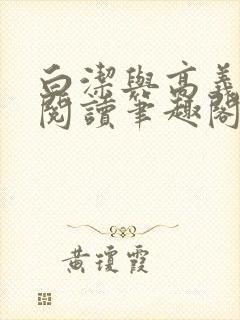 白潔與高義
閱讀筆趣閣
黃瓊霞